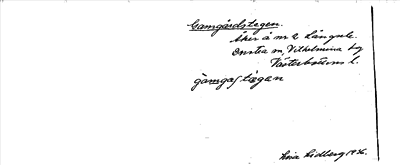 Gamgårdstegen.
Åker å nr 2 Långsele.
Onstra m, Vilhelmina by
Västerbottens l.
gàmgaṣtegen
Lisa Lidberg 1936.